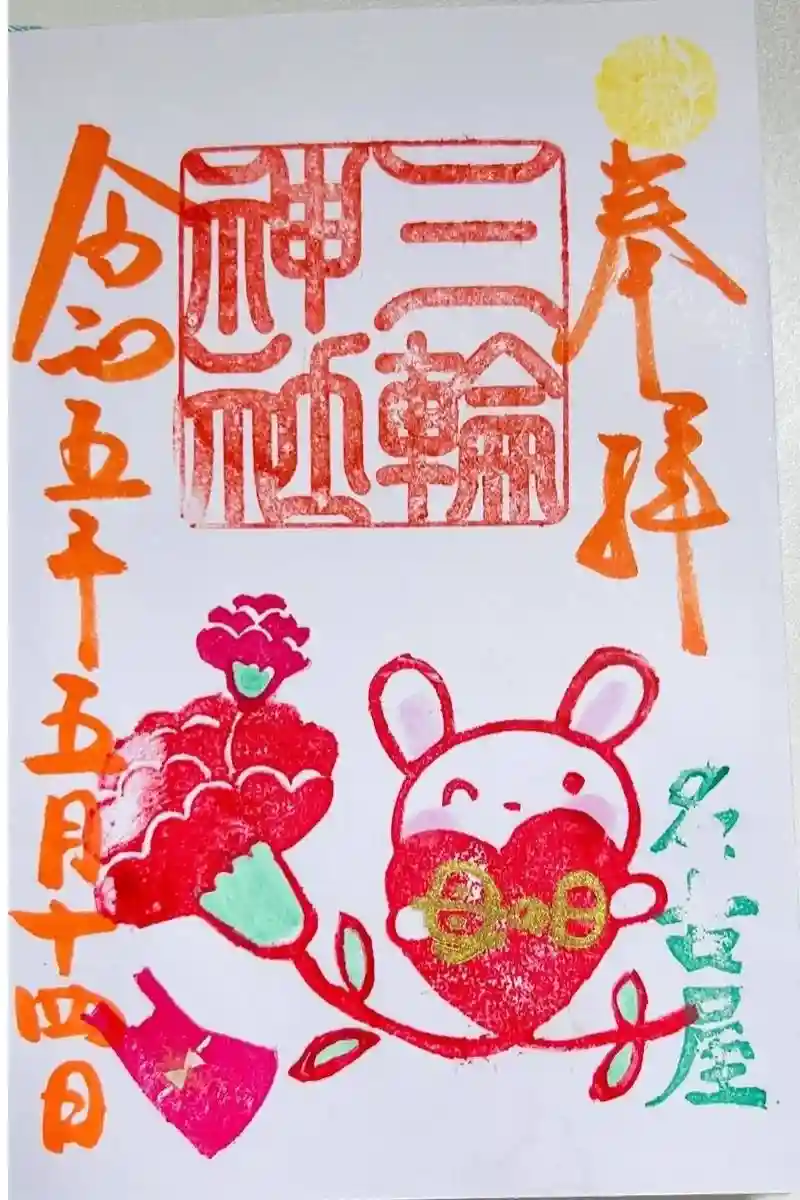 奉拝
三輪
神社
名古屋
母の日
令和五年五月十四日